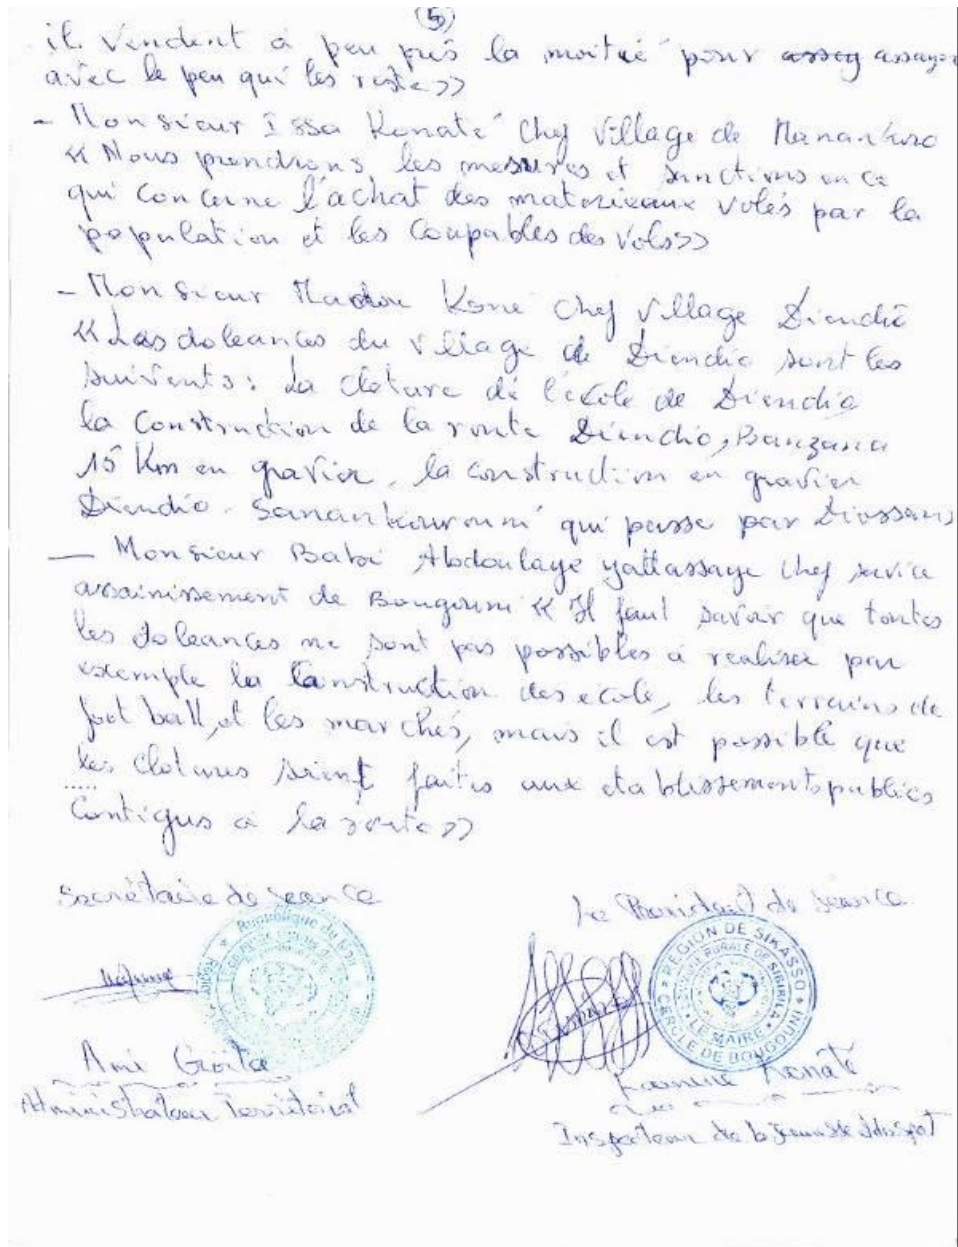 (5)
il vendent à peu près la moitié pour assay assayer
avec le peu qui les reste >>
- Monsieur Issa Konaté Chef Village de Manankoro
<< Nous prendrons les mesures et sanctions en ce
qui concerne l'achat des materieaux volés par la
population et les coupables des vols >>
- Monsieur Madou Koné Chef village Diendio
<< Les doleances du village de Diendio sont les
suivents : La cloture de l'école de Diendio
la construction de la route Diendio, Banzana
15 Km en gravier, la construction en gravier
Diendio - Sanankourouni qui passe par
— Monsieur Baba Abdoulaye yattassaye chef service
assainissement de Bougouni << Il faut savoir que toutes
les doleances ne sont pas possibles à realiser par
exemple la Construction des ecole, les terrains de
foot ball, et les marchés, mais il est possible que
les clotures soient faites aux etablissements publics
Contigus à la route >>
Secrétaire de seance
Le President de seance
REGION DE SIKASSO
COMMUNE RURALE DE SIBIRILA
LE MAIRE
CERCLE DE BOUGOUNI
République du Mali
Ami Goïta
Administrateur Territorial
Konaté
Inspecteur de la jeunesse